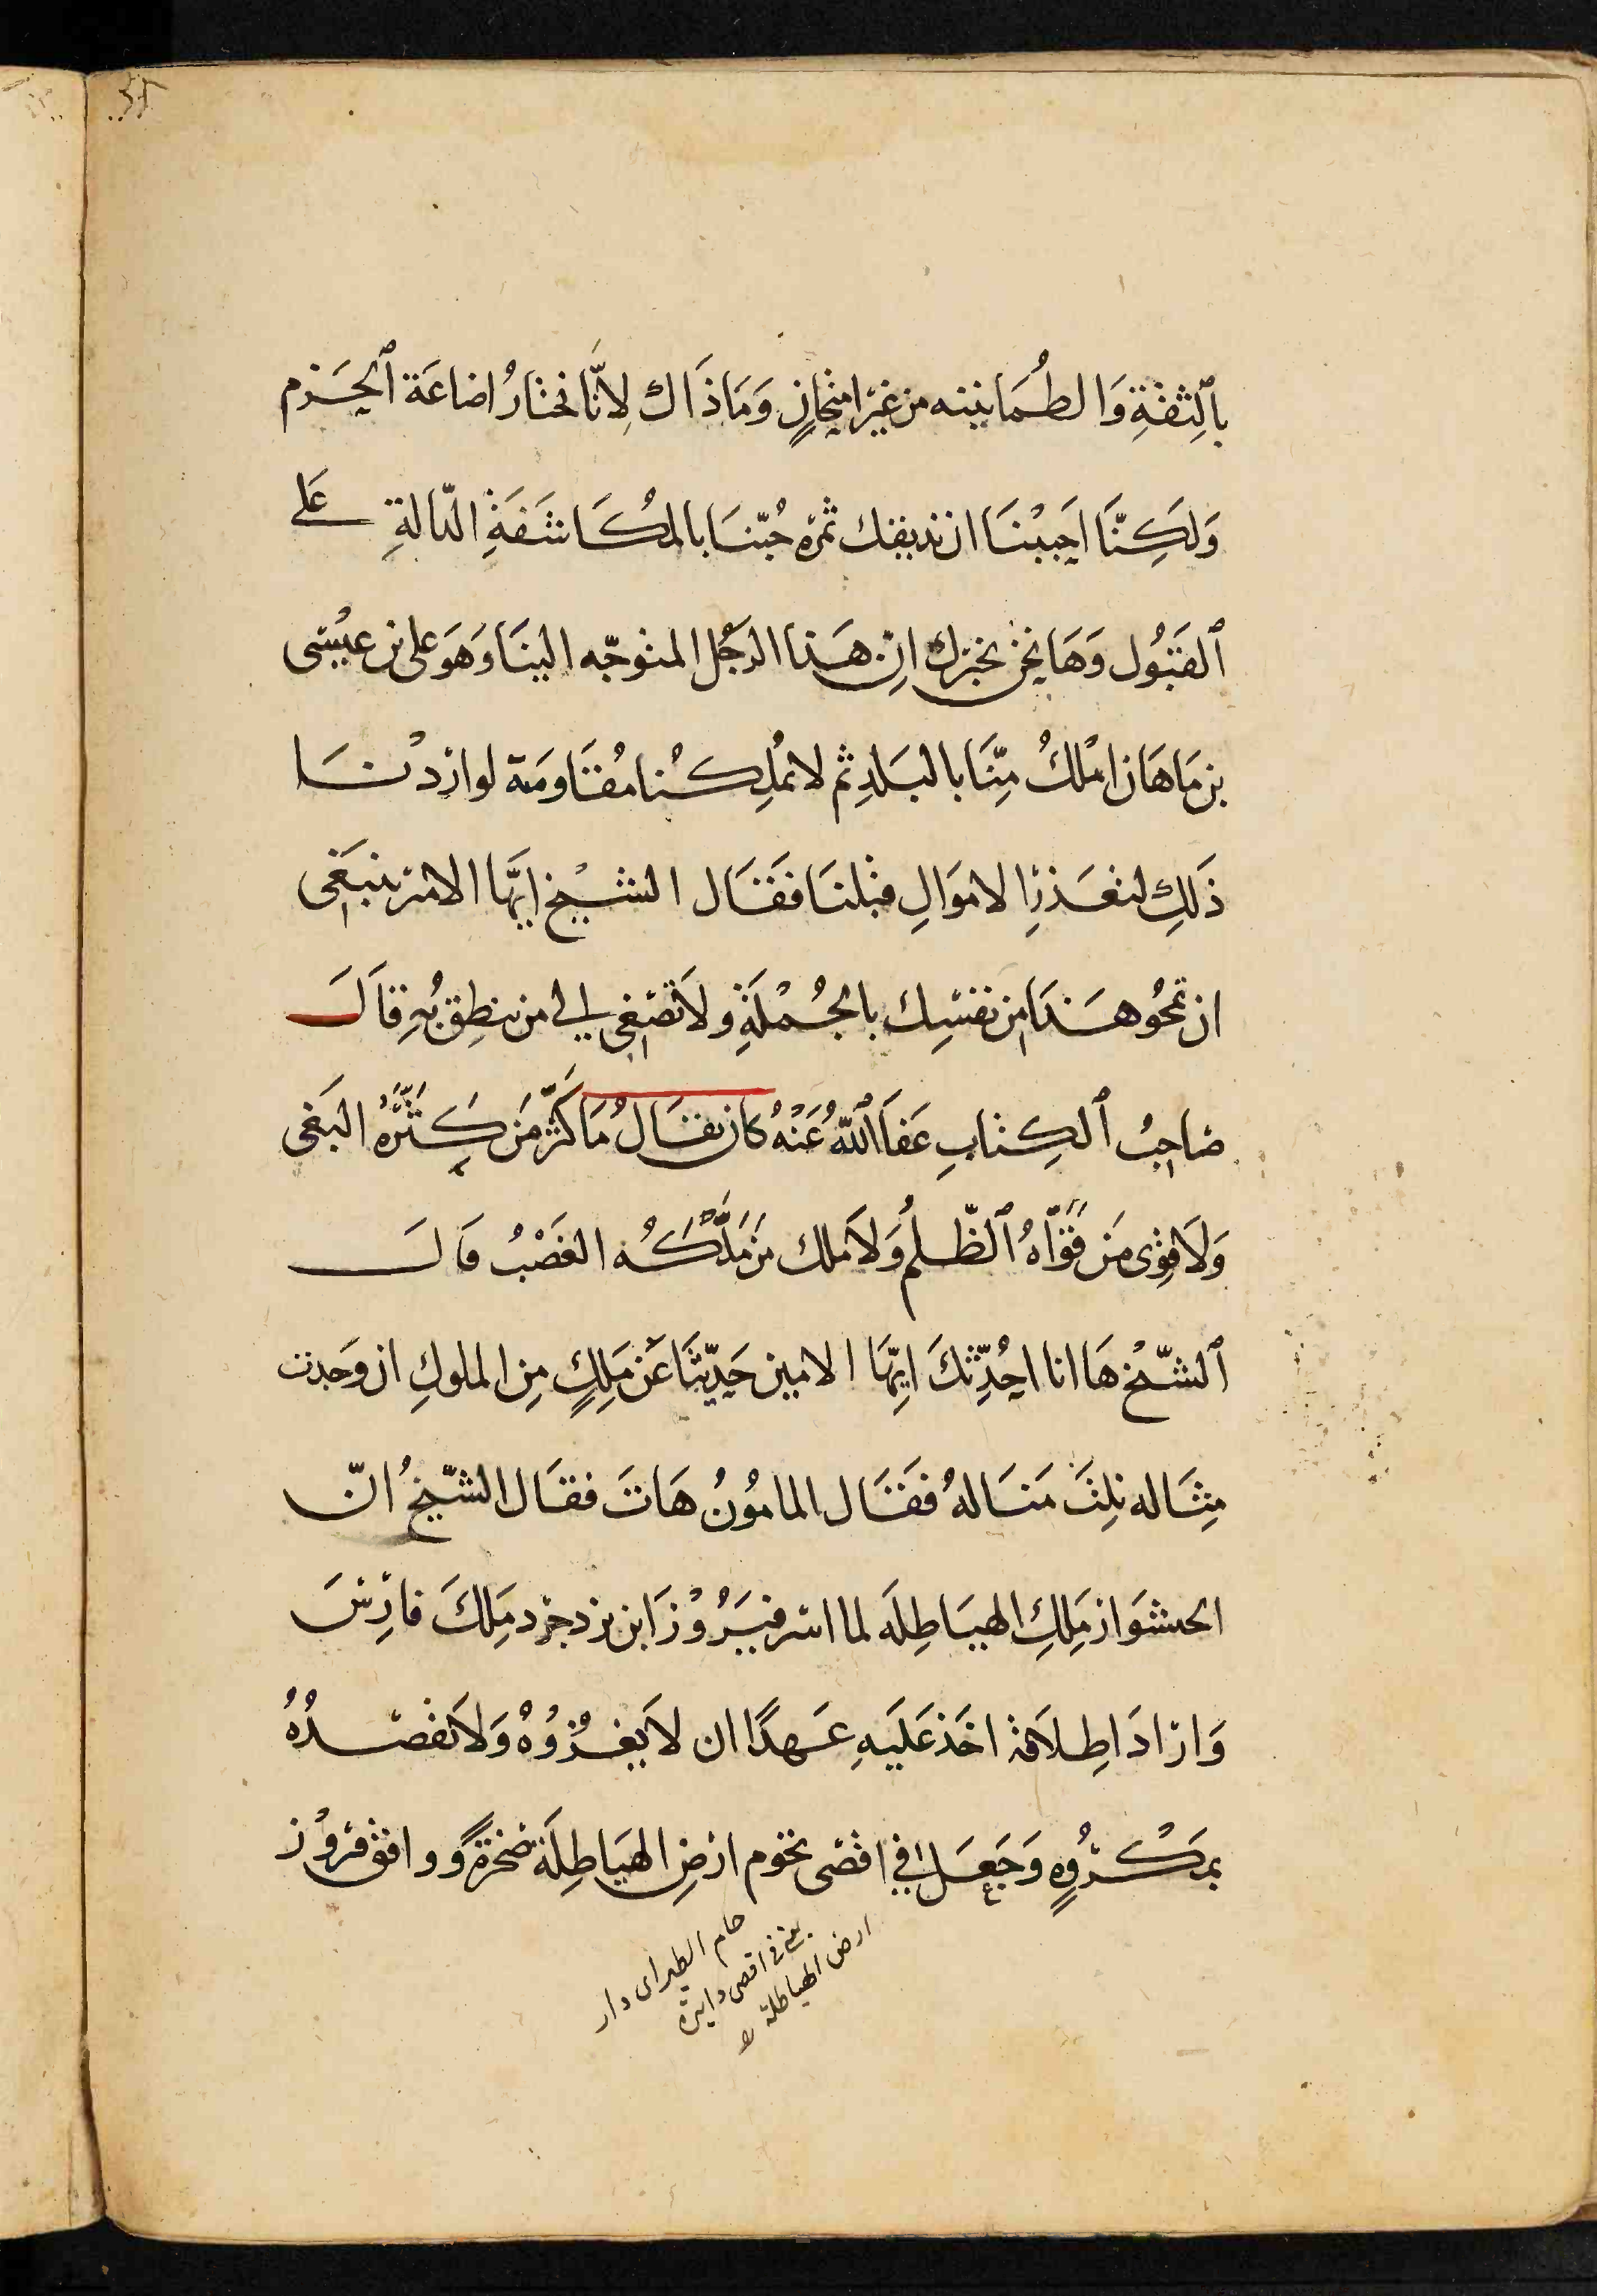 بالثِقَةِ وَالطُمَانينه من غير امتحانٍ وَمَا ذَاك لِانّا نختارُ اضاعَة الحَزم
وَلَكِنّا احَببْنَا ان نذيقك ثمره حُبّنَا بالمُكَاشَفَةِ الدّالةِ على
القَبُول وَهَا نحن نخبرك انّ هَذا الرجُل المتوجّه الينَا وَهوَ على بن عيْسَى
بن مَاهَان امْلكُ مِنّا بالبَلدِ ثم لا يمُكِنُنا مُقاوَمَة لو اردْنَا
ذَلِكَ لتعَذرِ الاموَالِ قبلنَا فقَال الشيْخ ايّها الامير ينبَغى
ان تمحُو هَذَا من نفسِك بالجُمْلَةِ ولا تصْغى الى من ينطِق بُهِ قالَ
صَاحِبُ الكِتابِ عَفَا اللهُ عَنْهُ كان يقَالُ مَا كَثُر مَن كَثَّرهُ البَغى
وَلَا قِوى مَن قَوّاهُ الظّلمُ وَلَا ملك مَن مَلّكَهُ الغَصْبُ قَالَ
الشّيْخ هَا انا احُدِّثكَ ايّهَا الامير حَديْثا عَن مَلِكٍ مِن الملوكِ ان وَجدت
مِثَاله نِلتَ مَنَالهُ فقَال المامُونُ هَاتَ فقَال الشيّخُ انّ
الحشنوَاز مَلِكِ الهيَاطِلَه لما اسر فيَرُوْزَ ابن يزدجرد مَلِكَ فارِسَ
وَارَادَ اطِلَاقهُ اخَذ عَلَيهِ عَهدًا ان لا يغْزُوهُ وَلا يقصُدُهُ
بمَكْرُوهِ وَجَعَل في اقصَى تخوم ارضِ الهيَاطِلَة صَخرةً ووافق فيروْز
حام الطير اى دار
يعنى فى اقصى دايرة
ارض الهياطلة